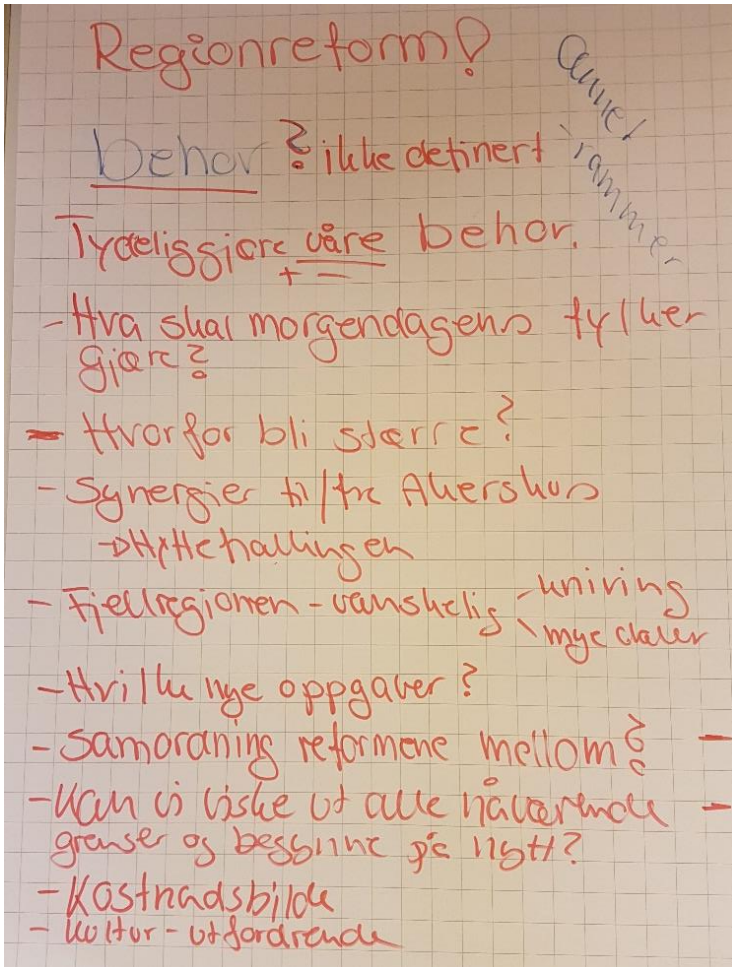 Regionreform!
behov? ikke definert
Tydeliggjøre våre behov.
+ -
- Hva skal morgendagens fylker
gjøre?
- Hvorfor bli større?
- Synergier til/fra Akershus
→ Hyttehallingen
- Fjellregionen - vanskelig - uniring
\ mye daler
- Hvilke nye oppgaver?
- Samordning reformene mellom? -
- Kan vi viske ut alle nåværende -
grenser og begynne på nytt?
- Kostnadsbilde
- Kultur - utfordrende
rammer